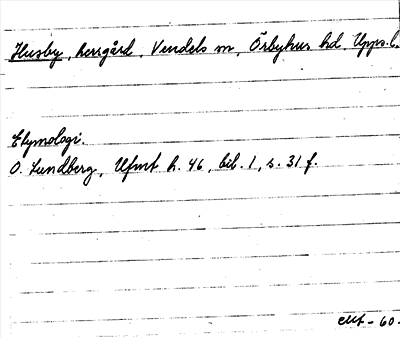 Husby, herrgård, Vendels sn, Örbyhus hd Upps. l.
Etymologi.
O. Lundberg, Ufmt h. 46, bil. 1, s. 31 f.
- 60.